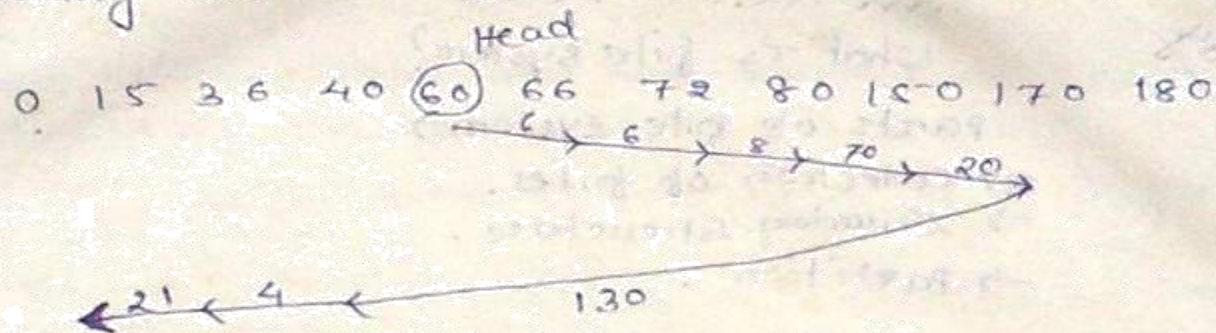 Head
0 15 36 40 60 66 72 80 150 170 180
6 6 8 70 20
21 4 130